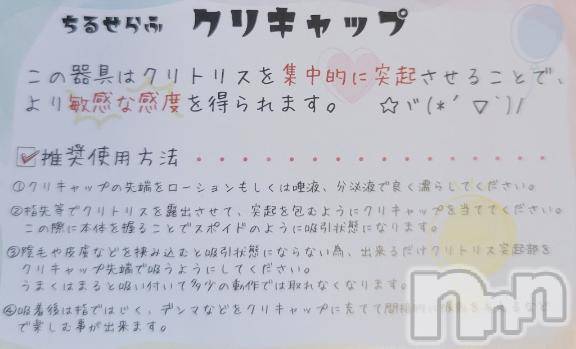 ちるせらふ クリキャップ
この器具はクリトリスを集中的に突起させることで、
より敏感な感度を得られます。 ☆ヾ(*´▽`)ﾉ
推奨使用方法
①クリキャップの先端をローションもしくは唾液、分泌液で良く濡らしてください。
②指先等でクリトリスを露出させて、突起を包むようにクリキャップを当ててください。
この際に本体を握ることでスポイドのように吸引状態になります。
③陰毛や皮膚などを挟み込むと吸引状態にならない為、出来るだけクリトリス突起部を
クリキャップ先端で吸うようにしてください。
うまくはまると吸い付いて多少の動作では取れなくなります。
④吸着後は指ではじく、デンマなどをクリキャップに充てて間接的に
で楽しむ事が出来ます。
nnn